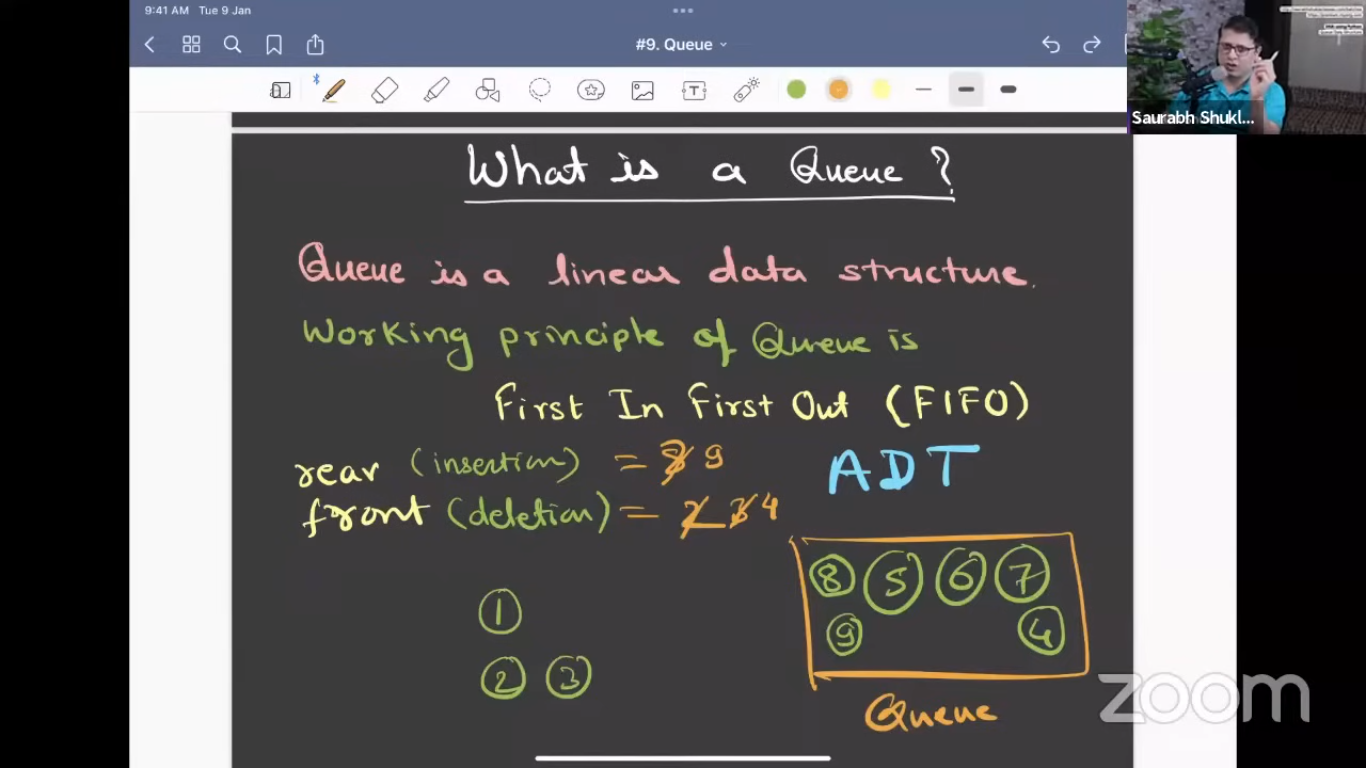 9:41 AM Tue 9 Jan
#9. Queue
T
Saurabh Shukl...
What is a Queue?
Queue is a linear data structure.
Working principle of Queue is
First In First Out (FIFO)
rear (insertion) = 8 9
ADT
front (deletion) = 2 3 4
8 5 6 7
9 4
1
2 3
Queue
zoom